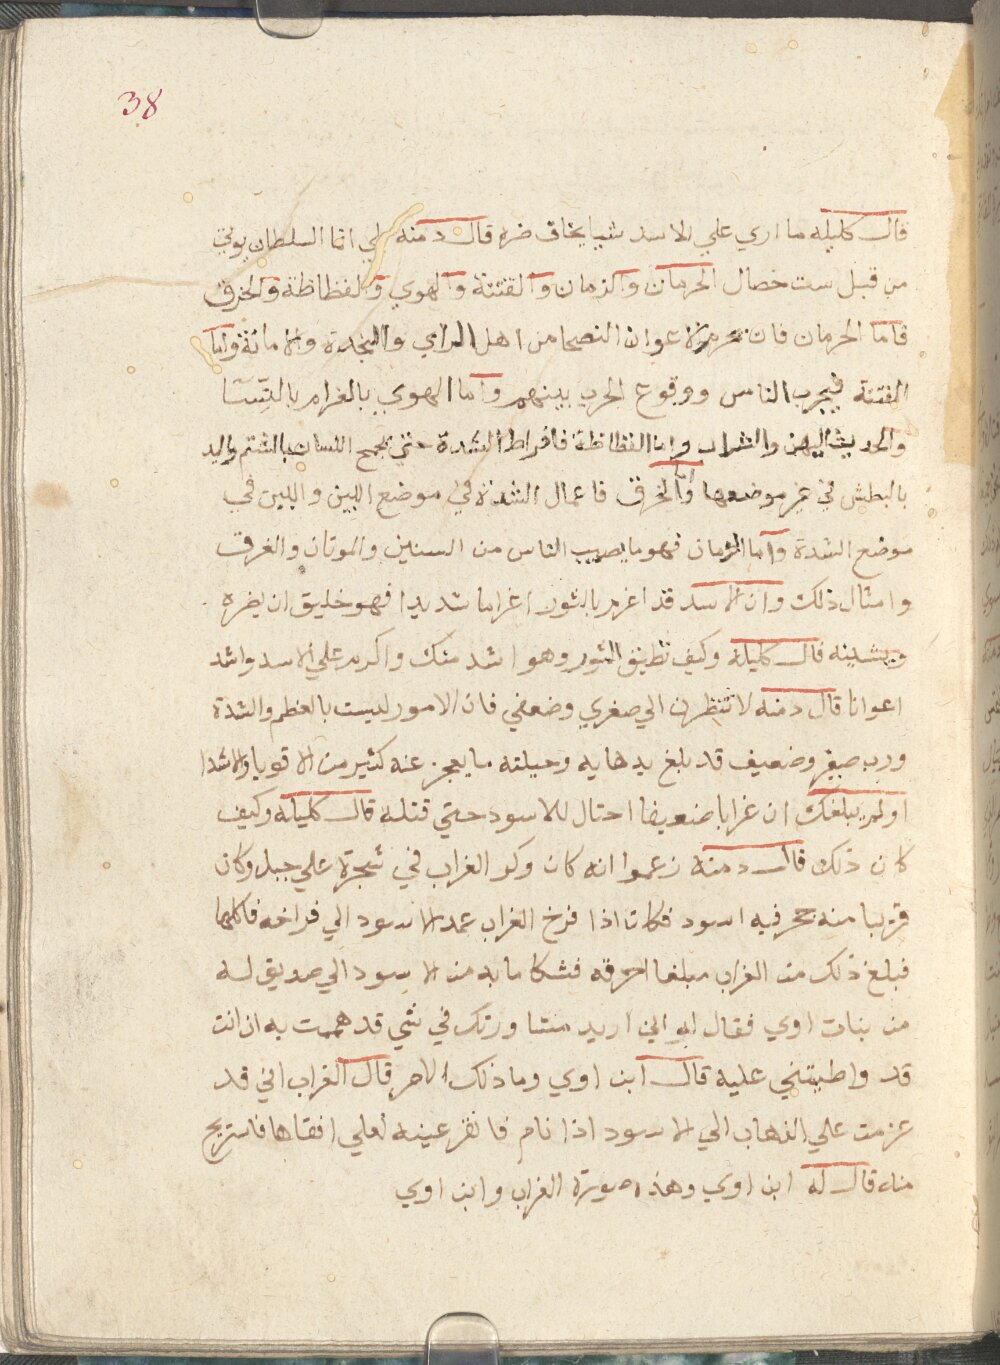 38
قال كليله ما اري علي الاسد شيا يخاف ضره قال دمنه لي انما السلطان يوتي
من قبل ست خصال الحرمان والزمان والفتنة والهوي والفظاظة والخرق
فاما الحرمان فان يحرم الاعوان النصحا من اهل الراي والنجدة والامانة واما
الفتنة فتجرب الناس ووقوع الحرب بينهم واما الهوي بالغرام بالنسا
والحديث اليهن والشراب واما الفظاظة فافراط الشدة حتي يجمح اللسان بالشتم واليد
بالبطش في غير موضعها واما الخرق فاعمال الشدة في موضع اللين واللين في
موضع الشدة واما الزمان فهو ما يصيب الناس من السنين والموتان والغرق
وامثال ذلك وان الاسد قد اغرم بالثور اغراما شديدا فهو خليق ان يضره
ويشينه قال كليله وكيف تطيق الثور وهو اشد منك واكرم علي الاسد واشد
اعوانا قال دمنه لا تنظرن الي صغري وضعفي فان الامور ليست بالعظم والشدة
ورب صغير وضعيف قد بلغ بدهايه وحيلته ما يعجز عنه كثير من الاقويا والاشدا
اولم يبلغك ان غرابا ضعيفا احتال للاسود حتي قتله قال كليله وكيف
كان ذلك قال دمنه زعموا انه كان وكر الغراب في شجرة علي جبل وكان
قريبا منه حجر فيه اسود فكان اذا فرخ الغراب عمد الاسود الي فراخه فاكلها
فبلغ ذلك من الغراب مبلغا احرقه فشكا ما به من الاسود الي صديق له
من بنات اوي فقال له اني اريد مشاورتك في شي قد هممت به ان انت
قد واطيتني عليه قال ابن اوي وما ذلك الامر قال الغراب اني قد
عزمت علي الذهاب الي الاسود اذا نام فانقر عينه لعلي افقاها فاستريح
منه قال له ابن اوي وهذه صورة الغراب وابن اوي